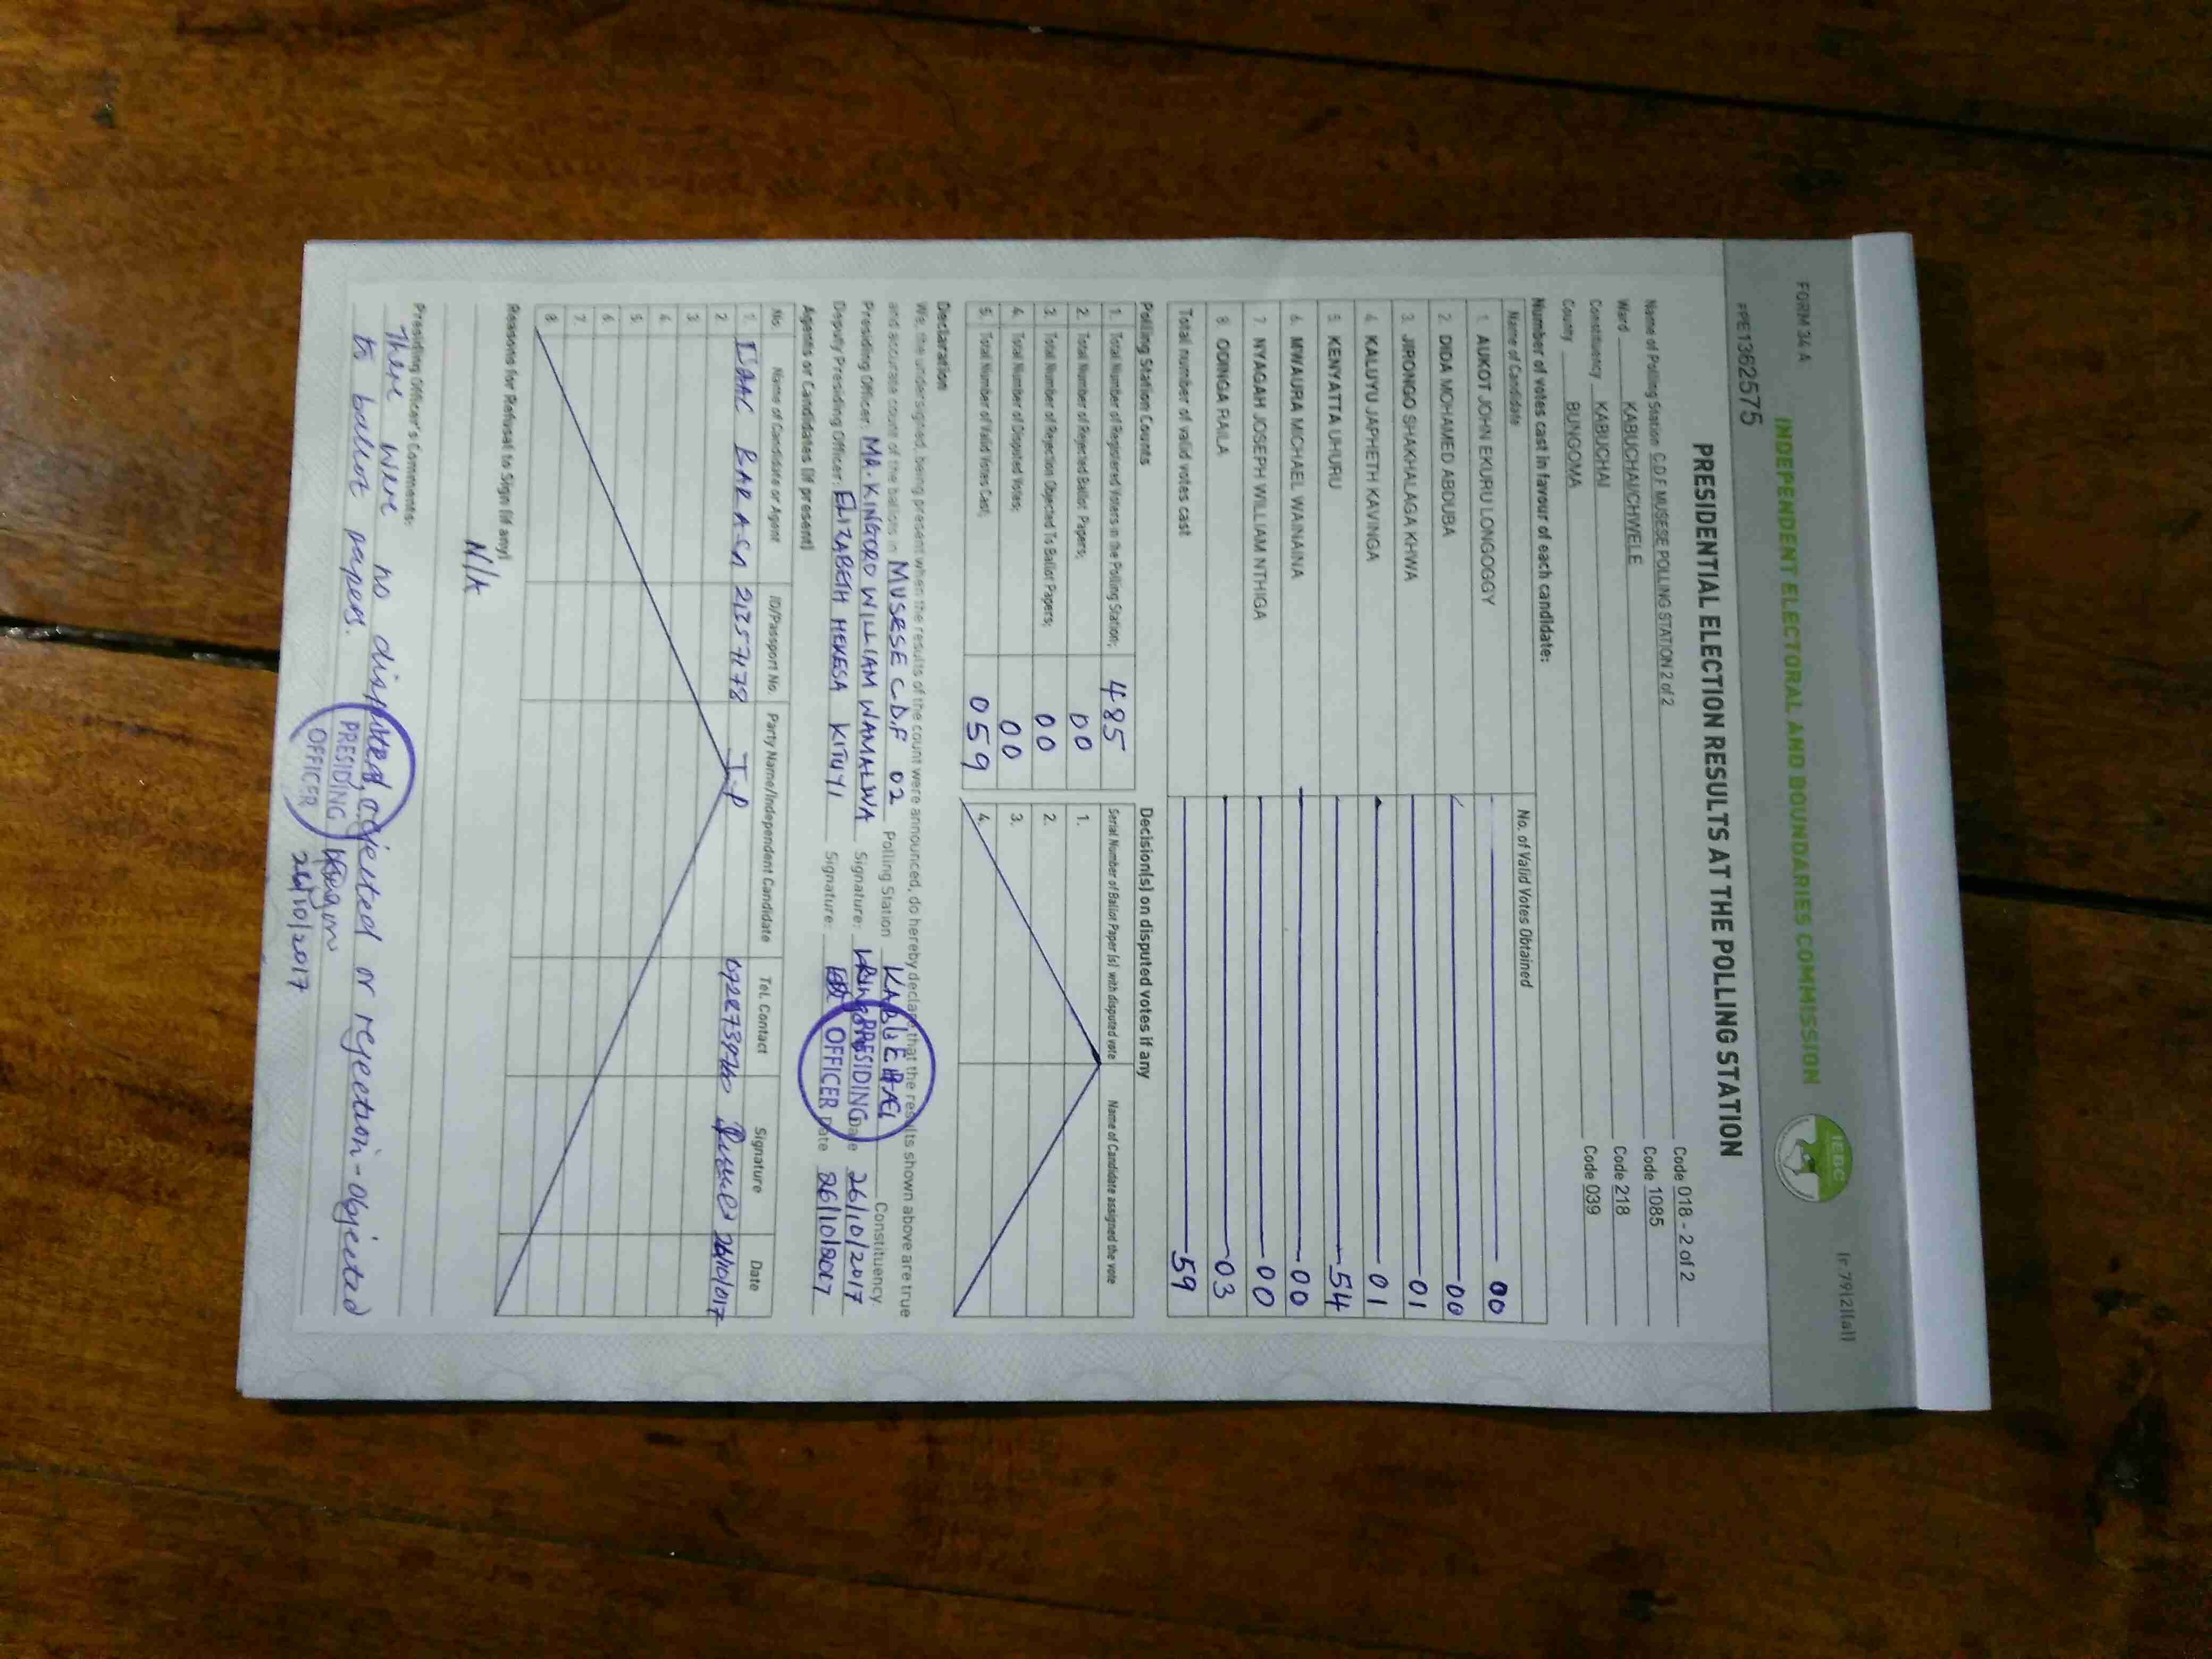 FORM 34 A
(r.79(2)(a))
INDEPENDENT ELECTORAL AND BOUNDARIES COMMISSION
IEBC
#PE1362575
PRESIDENTIAL ELECTION RESULTS AT THE POLLING STATION
Name of Polling Station C.D.F MUSESE POLLING STATION 2 of 2 Code 018 - 2 of 2
Ward KABUCHAI/CHWELE Code 1085
Constituency KABUCHAI Code 218
County BUNGOMA Code 039
Number of votes cast in favour of each candidate:
Name of Candidate No. of Valid Votes Obtained
1. AUKOT JOHN EKURU LONGOGGY 00
2. DIDA MOHAMED ABDUBA 00
3. JIRONGO SHAKHALAGA KHWA 01
4. KALUYU JAPHETH KAVINGA 01
5. KENYATTA UHURU 54
6. MWAURA MICHAEL WAINAINA 00
7. NYAGAH JOSEPH WILLIAM NTHIGA 00
8. ODINGA RAILA 03
Total number of valid votes cast 59
Polling Station Counts
1. Total Number of Registered Voters in the Polling Station; 485
2. Total Number of Rejected Ballot Papers; 00
3. Total Number of Rejection Objected To Ballot Papers; 00
4. Total Number of Disputed Votes; 00
5. Total Number of Valid Votes Cast; 059
Decision(s) on disputed votes if any
Serial Number of Ballot Paper (s) with disputed vote Name of Candidate assigned the vote
1.
2.
3.
4.
Declaration
We, the undersigned, being present when the results of the count were announced, do hereby declare that the results shown above are true
and accurate count of the ballots in MUSESE C.D.F 02 Polling Station Constituency
Presiding Officer: MA.KINGORO WILLIAM WAMALWA Signature: Date 26/10/2017
Deputy Presiding Officer: ELIZABETH HEKESA KITUYI Signature: Date 26/10/2017
PRESIDING
OFFICER
Agents or Candidates (if present)
No. Name of Candidate or Agent ID/Passport No. Party Name/Independent Candidate Tel. Contact Signature Date
1. ISAAC BARASA J.P
2.
3.
4.
5.
6.
7.
8.
Reasons for Refusal to Sign (if any)
N/A
Presiding Officer's Comments:
There were no disputed, objected or rejection-objected
to ballot papers.
PRESIDING
OFFICER
26/10/2017